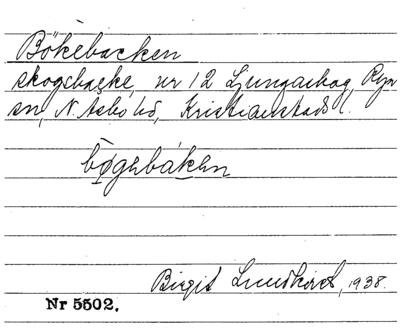 Bökebacken
skogsbacke, nr 12 Ljungaskog, Ryn
sn, N. Åsbo hd, Kristianstads l.
bö̀gebákен
Birgit Lundkvist, 1938.
Nr 5502.